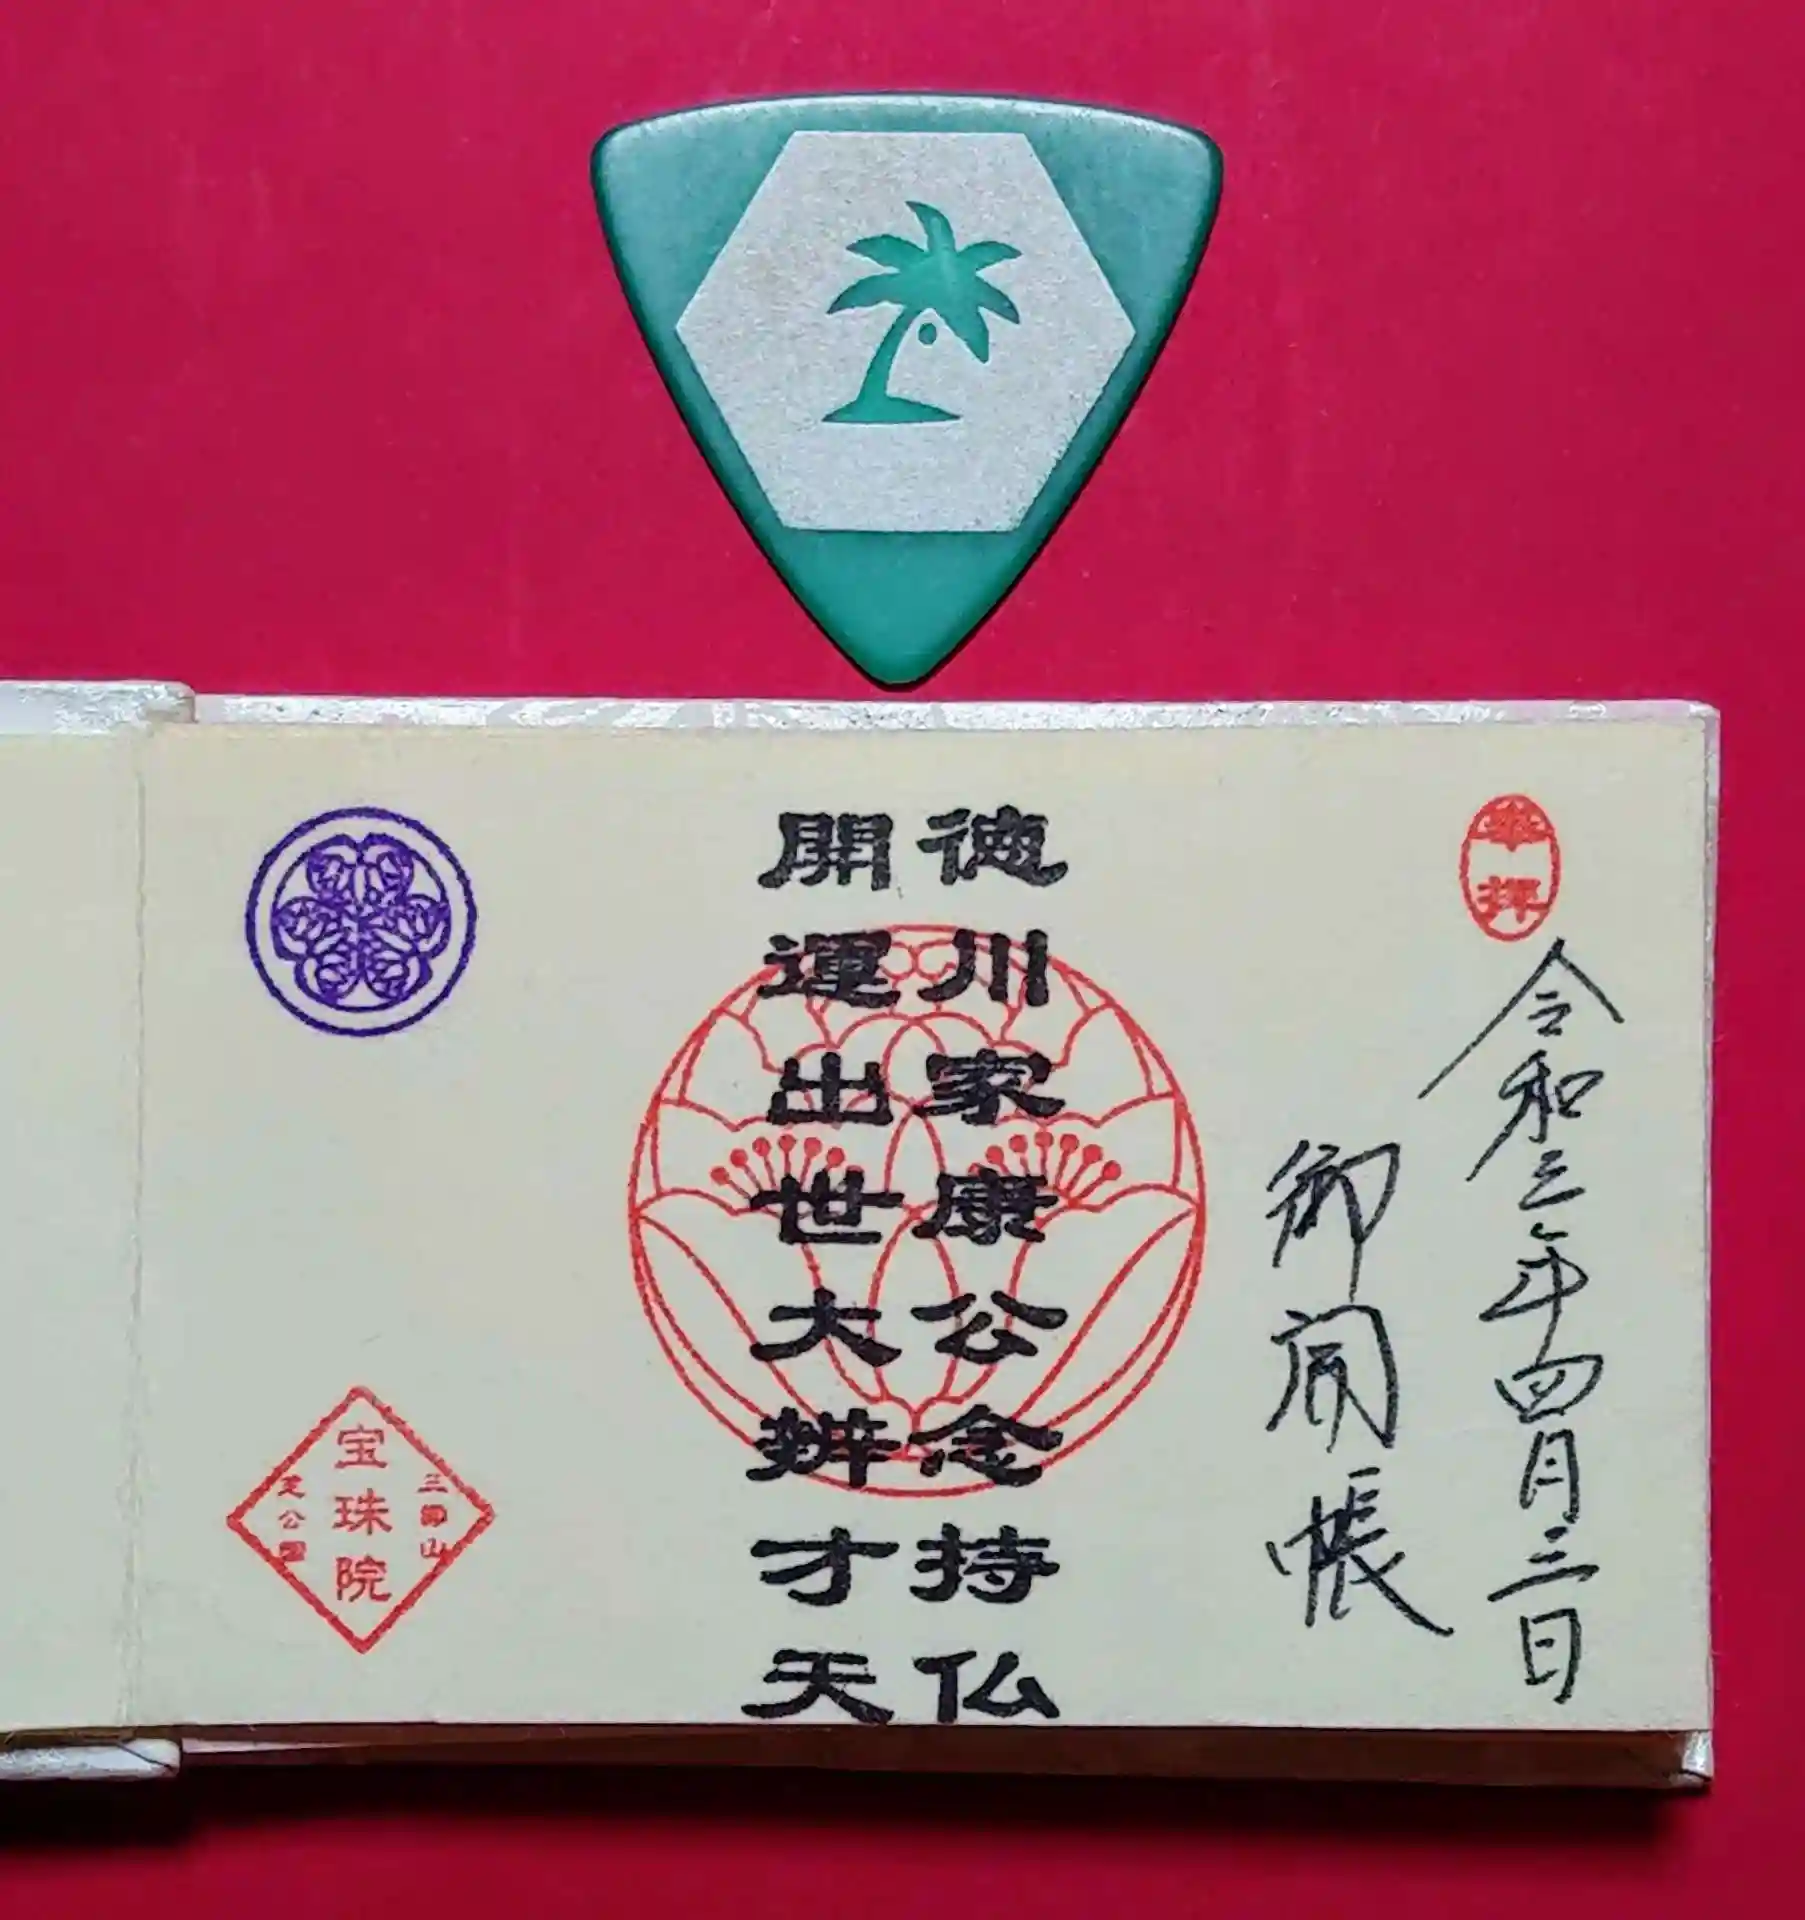 奉拝
令和三年四月三日
御開帳
徳川家康公念持仏
開運出世大辨才天
三圓山
宝珠院
芝公園